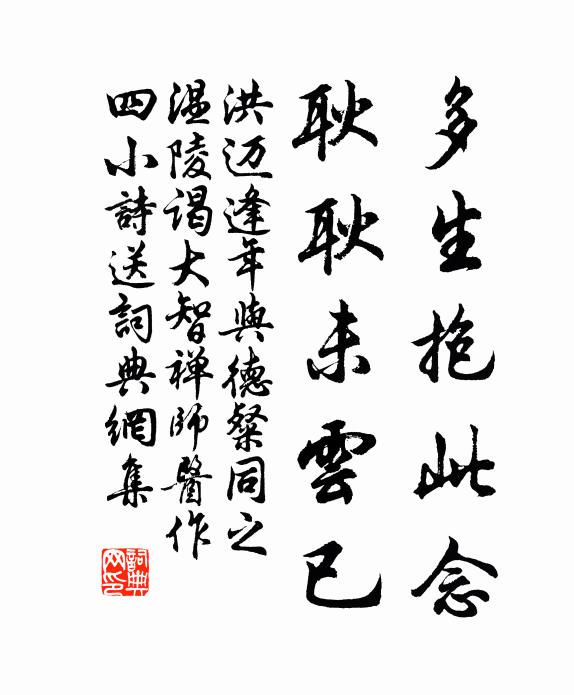 多生抱此念
耿耿未雲已
洪迈逢年與德粲同之
温陵谒大智禅師醫作
四小詩送詞典網集
詞典网印